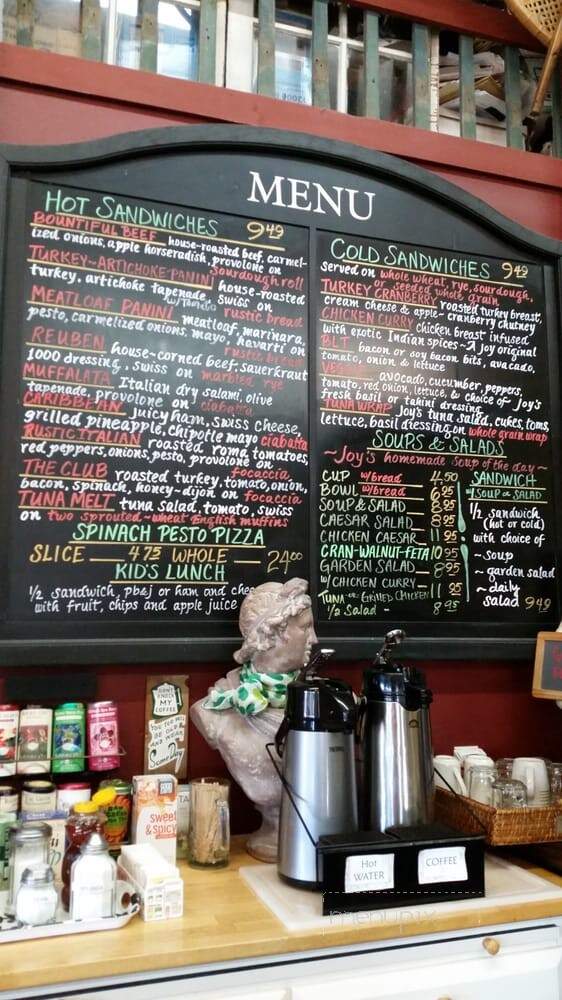 MENU
HOT SANDWICHES 9.49
BOUNTIFUL BEEF house-roasted beef, carmel-
ized onions, apple horseradish, provolone on
sourdough roll
TURKEY-ARTICHOKE PANINI house-roasted
turkey, artichoke tapenade, swiss on
w/Tomato rustic bread
MEATLOAF PANINI meatloaf, marinara,
pesto, carmelized onions, mayo, havarti on
rustic bread
REUBEN house-corned beef, sauerkraut
1000 dressing, swiss on marbled rye
MUFFALATA Italian dry salami, olive
tapenade, provolone on ciabatta
CARIBBEAN juicy ham, swiss cheese,
grilled pineapple, chipotle mayo ciabatta
RUSTIC ITALIAN roasted roma tomatoes,
red peppers, onions, pesto, provolone on
focaccia
THE CLUB roasted turkey, tomato, onion,
bacon, spinach, honey-dijon on focaccia
TUNA MELT tuna salad, tomato, swiss
on two sprouted-wheat English muffins
SPINACH PESTO PIZZA
SLICE 4.75 WHOLE 24.00
KID'S LUNCH
1/2 sandwich, pb&j or ham and chee
with fruit, chips and apple juice
COLD SANDWICHES 9.49
served on whole wheat, rye, sourdough,
or seeded whole grain
TURKEY CRANBERRY roasted turkey breast,
cream cheese & apple-cranberry chutney
CHICKEN CURRY chicken breast infused
with exotic Indian spices-A Joy original
BLT bacon or soy bacon bits, avacado,
tomato, onion & lettuce
VEGGIE avocado, cucumber, peppers,
tomato, red onion, lettuce, & choice of Joy's
fresh basil or tahini dressing
TUNA WRAP Joy's tuna salad, cukes, toms,
lettuce, basil dressing on whole grain wrap
SOUPS & SALADS
~Joy's homemade soup of the day~
CUP w/bread 4.50
BOWL w/bread 6.95
SOUP & SALAD 8.95
CAESAR SALAD 8.95
CHICKEN CAESAR 11.95
CRAN-WALNUT-FETA 10.95
GARDEN SALAD 8.95
w/CHICKEN CURRY
TUNA or GRILLED CHICKEN 11.95
1/2 Salad - 8.95
SANDWICH
w/SOUP or SALAD
1/2 sandwich
(hot or cold)
with choice of
~soup
~garden salad
~daily
salad 9.49
DON'T
KNOCK
MY
COFFEE
YOU TOO MAY
BE OLD
AND
WEAK
SomeDay
sweet
& spicy
Hot
WATER
COFFEE
menupix